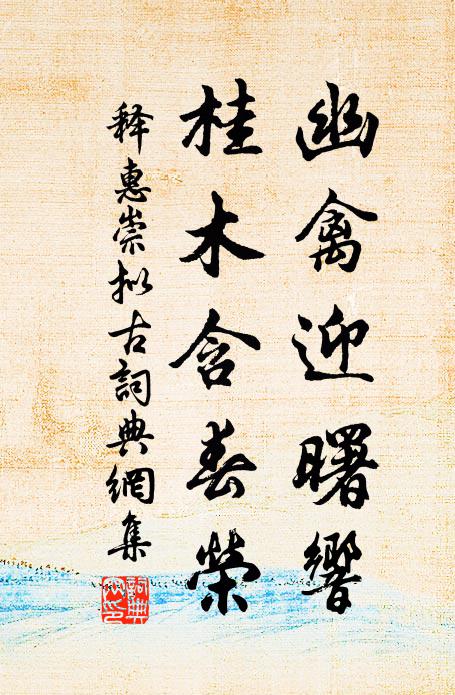 幽禽迎曙響
桂木含春榮
释惠崇拟古詞典網集